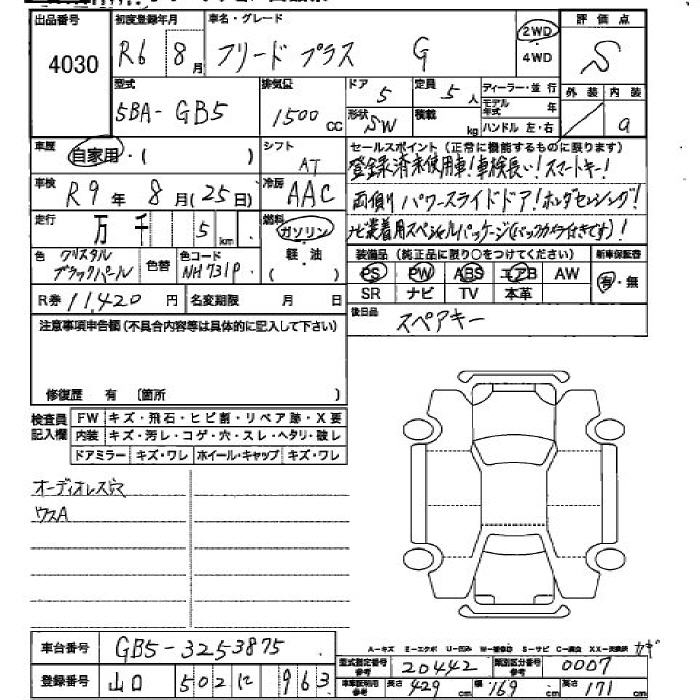 出品番号 初度登録年月 車名・グレード 評価点
4030 R6 8月 フリード プラス G 2WD 4WD S
型式 排気量 ドア 定員 ディーラー・並行 外装 内装
5BA-GB5 1500cc 5 5人 モデル年式 年 a
形状 SW 積載 kg ハンドル 左・右
車歴 自家用・( ) シフト AT セールスポイント(正常に機能するものに限ります)
登録済未使用車!車検長い!スマートキー!
車検 R9年 8月(25日) 冷房 AAC 両側パワースライドドア!ホンダセンシング!
走行 万 千 5km 燃料 ガソリン 軽・油 ナビ装着用スペシャルパッケージ(バックカメラ付きです)!
色 クリスタルブラックパール 色替 色コード NH731P 装備品(純正品に限り○をつけてください) 新車保証書
PS PW ABS エアB AW 有・無
SR ナビ TV 本革
R券 11,420円 名変期限 月 日
後日品 スペアキー
注意事項申告欄(不具合内容等は具体的に記入して下さい)
修復歴 有 〔箇所 〕
検査員記入欄 FW キズ・飛石・ヒビ割・リペア跡・X要
内装 キズ・汚レ・コゲ・穴・スレ・ヘタリ・破レ
ドアミラー キズ・ワレ ホイール・キャップ キズ・ワレ
オーディオレス穴
ウスA
車台番号 GB5-3253875
A…キズ E…エクボ U…凹み W…補修跡 S…サビ C…腐食 XX…交換済 カギ
型式指定番号 参考 20442 類別区分番号 参考 0007
登録番号 山口 502 に 963
車車証明用参考 長さ 429cm 幅 169cm 高さ 171cm